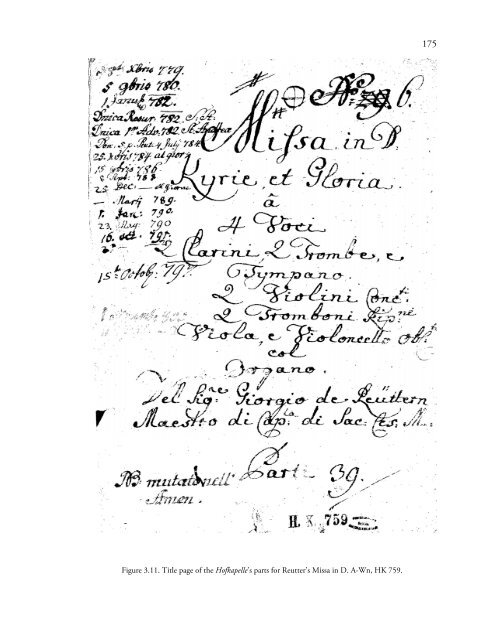 175
xbris 779.
5 9bris 780.
1. Januar 782.
Dnica Resur. 782. S. St.
Dnica 1ma Adv. 782. St.
Dom. 5. p. Pent. 4 July 784
25. xbris 784. al gloria
15 9bris 786.
788
25 Dec
Martij 789.
1. Jan: 790.
23. May: 790
16. oct. 791.
15t Octob. 797.
No: 6.
Missa in D.
Kyrie, et Gloria
â
4 Voci
2 Clarini, 2 Trombe, e
Tympano.
2 Violini Conc:ti
2 Tromboni Rip:ni
Viola, e Violoncello obl:ti
col
Organo.
Del Sig:re Giorgio de Reüttern
Maestro di Cap:la di Sac: Ces. M.
Parti 39.
NB: mutat
Amen.
H. K. 759
Figure 3.11. Title page of the Hofkapelle's parts for Reutter's Missa in D. A-Wn, HK 759.